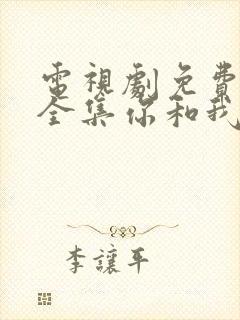 電視劇免費
全集你和我
李讓平